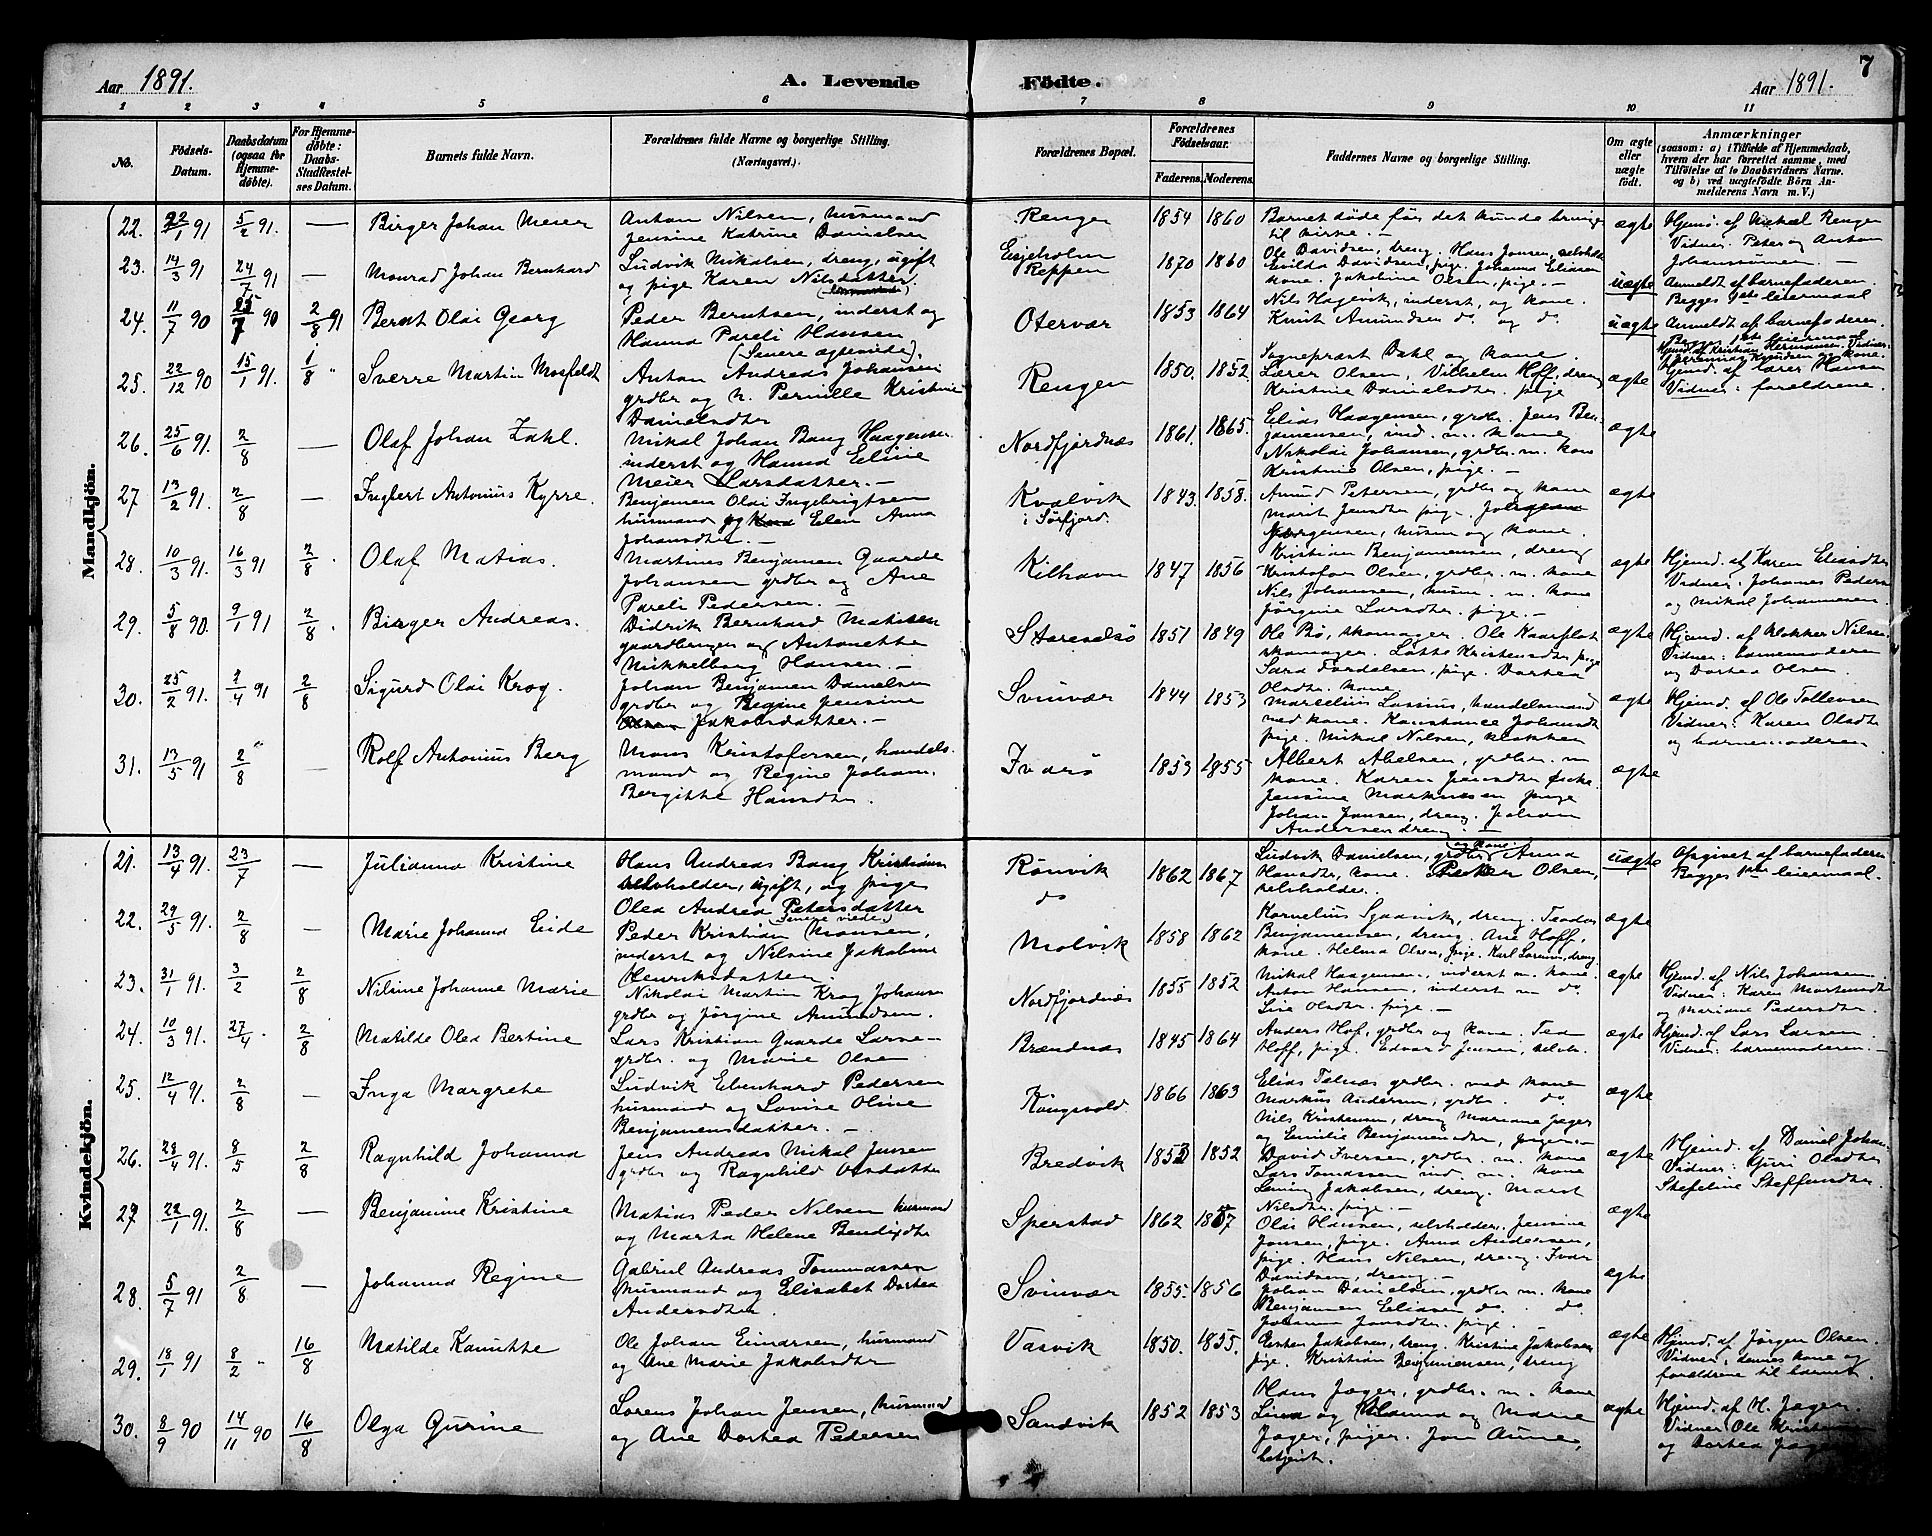 Aar 1891.
A. Levende Fødte.
7
Aar 1891.
1 2 3 4 5 6 7 8 9 10 11
No.
Fødsels-Datum.
Daabsdatum (ogsaa for Hjemme-døbte).
For Hjemme-døbte: Daabs-Stadfæstel-ses Datum.
Barnets fulde Navn.
Forældrenes fulde Navne og borgerlige Stilling. (Næringsvei.)
Forældrenes Bopæl.
Forældrenes Fødselsaar.
Faderens. Moderens.
Faddernes Navne og borgerlige Stilling.
Om ægte eller uægte født.
Anmærkninger (saasom: a) i Tilfælde af Hjemmedaab, hvem der har forrettet samme, med Tilføielse af to Daabsvidners Navne. og b) ved uægtefødte Børn An-melderens Navn m. V.)
Mandkjøn.
22. 22/1 91 5/2 91. — Birger Johan Meier
Anton Nilsen, husmand
Jensine Katrine Danielsen
Rengen 1854 1860
Barnet døde før det kunde bringes
til kirke. —
ægte
Hjemd. af Mikal Rengen
Vidner: Peter og Anton
Johannsen. —
23. 14/3 91 24/7 91 — Monrad Johan Bernhard
Ludvik Mikalsen, dreng, ugift
og pige Karen Nilsdatter.
Reppen 1870 1860
Ole Davidsen, dreng. Hans Jensen, selvholder
Evilda Davidsen, pige. Johanna Eliasen
kone. Jakobine Olsen, pige. —
uægte
Anmeldt af barnefaderen.
Begges 1ste leiermaal
24. 11/7 90 25/7 90 2/8 91 Bernt Olai Georg
Peder Berntsen, inderst og
Hanna Pareli Hansen
(Senere ægteviede).
Otervær 1853 1864
Nils Hagevik, inderst, og kone.
Knut Amundsen do og do
uægte
Anmeldt af barnefaderen.
25. 22/12 90 15/1 91. 1/8 " Sverre Martin Mosfeldt
Anton Andreas Johansen
grdbr og h. Pernille Kristine
Danielsdtr
Rengen 1850. 1852.
Sogneprest Dahl og kone.
Lærer Olsen, Vilhelm Hoff, dreng
Kristine Danielsdtr. pige
ægte
Hjemd. af lærer Hansen
Vidner: forældrene.
26. 25/6 91. 2/8 — Olaf Johan Zahl.
Mikal Johan Bang Haagensen
inderst og Hanna Eline
Meier Larsdatter. —
Nordfjordnæs 1861. 1865.
Elias Haagensen, grdbr. Jens Ben-
jamensen, ind. m. kone
Nikolai Johansen, grdbr. m. kone
Kristine Olsen, pige. —
ægte
27. 13/2 91. 2/8 — Ingbert Antonius Kyrre.
Benjamen Olai Ingebrigtsen
husmand og Elen Anna
Johansdtr. —
Kvalvik
i Sørfjord. 1843. 1858.
Amund Petersen, grdbr og kone
Marit Jensdtr pige.
Jørgensen, husm og kone.
ægte
28. 10/3 91. 16/3 91 2/8 . Olaf Matias.
Martines Benjamen Gaarde
Johansen grdbr og Ane
Pareli Pedersen. —
Kilhavn 1847 1856
Kristian Benjamensen, dreng
Kristofer Olsen, grdbr. m. kone
Nils Johansen, husm. m. kone
Jørgine Larsdtr. pige. —
ægte
Hjemd. af Karen Eliasdtr
Vidner: Johannes Pedersen
og Mikal Johannesen.
29. 5/8 90. 9/1 91 2/8 . Birger Andreas.
Didrik Bernhard Matisen
gaardbruger og Antonette
Mikkelborg Hansen. —
1851 1849
Ole Bø, skomager. Ole Kaarflat
skomager. Lotte Kristensdtr, pige
Sara Tordelsen, pige. Dortea
Olsdtr. kone.
ægte
Hjemd. af klokker Nilsen.
Vidner: barnemoderen
og Dortea Olsen
30. 25/2 91. 2/4 91 2/8 Sigurd Olai Krog.
Johan Benjamen Danielsen
grdbr og Regine Jensine
Jakobsdatter. —
Svinvær 1844 1853
Marcelius Lassius, handelsmand
med kone. Konstance Johansdtr
pige. Mikal Nilsen, klokker
ægte
Hjemd. af Ole Tollevsen
Vidner: Karen Olsdtr
og barnemoderen.
31. 13/5 91 2/8 " — Rolf Antonius Berg
Mons Kristofersen, handels-
mand og Regine Johan.
Bergitte Hansdtr.
Ivarsø 1853 1855
Albert Abelsen, grdbr. m
kone. Karen Jensdtr Ørke
Jensine Markussen pige
Johan Jansen, dreng. Johan
Andersen dreng. —
ægte
Kvindekjøn.
21. 13/4 91. 23/7 — Julianna Kristine
Hans Andreas Bang Kristiansen
selvholder, ugift, og pige
Olea Andrea Petersdatter
(Senere viede)
Rønvik
do 1862 1867
Ludvik Danielsen, grdbr og kone. Anna
Hansdtr, kone. Peder Olsen,
selvholder.
uægte
Opgivet af barnefaderen
Begges 1ste leiermaal.
22. 29/5 91. 2/8 — Marie Johanna Eide
Peder Kristian Monsen,
inderst og Nilsine Jakobine
Henriksdatter.
Molvik 1858 1862
Kornelius Sjaavik, dreng. Teodor
Benjamensen, dreng. Ane Hoff,
kone. Helma Olsen, pige. Karl Larsen, dreng
ægte
23. 31/1 91. 3/2 2/8 Nilsine Johanne Marie
Nikolai Martin Krog Johansen
grdbr og Jørgine Amundsen.
Nordfjordnæs 1855 1852
Mikal Haagensen, inderst m. kone
Anton Hansen, inderst m do.
Lise Olsdtr. pige. —
ægte
Hjemd. af Nils Johansen
Vidner: Karen Mortensdtr
og Mariane Pedersdtr.
24. 10/3 91. 27/4 . 2/8 Matilde Olea Bertine
Lars Kristian Gaarde Larsen
grdbr. og Marie Olsen
Brændnæs 1845 1864
Anders Hof, grdbr og kone. Tea
Hoff, pige. Edvard Jensen, selvh.
ægte
Hjemd. af Lars Larsen
Vidner: barnemoderen. —
25. 12/4 91. 2/8 — Inga Margrethe
Ludvik Eberhard Pedersen
husmand og Lovise Oline
Benjamensdatter. —
Kongsvold. 1866 1863
Elias Telnæs grdbr. med kone
Markus Andersen, grdbr. do.
Nils Kristensen, dreng Mariane Jæger
og Emilie Benjamensdtr, piger. —
ægte
26. 28/4 91. 8/5 2/8 Ragnhild Johanna
Jens Andreas Mikal Jensen
grdbr og Ragnhild Olsdatter
Bredvik 1853 1852
David Iversen, grdbr. m. kone
Lars Tomassen ind. m. kone
Jakobsen, dreng. Marit
Nilsdtr. pige. —
ægte
Hjemd. af Daniel Johan.
Vidner: Guri Olsdtr
Stefeline Steffensdtr.
27. 22/1 91. 2/8 — Benjamine Kristine
Matias Peder Nilsen husmand
og Marta Helene Bendigdtr
Sperstad 1862 1857
Olai Hansen, selvholder. Jensine
Jansen, pige. Anna Andersen,
pige. Hans Nilsen, dreng. Ivar
Davidsen, dreng. —
ægte
28. 5/7 91 2/8 — Johanna Regine
Gabriel Andreas Tommassen
husmand og Elisabet Dortea
Andersdtr.
Svinvær 1855. 1856
Johan Danielsen, grdbr m. kone
Benjamen Eliasen do. do.
Johanna Jonsdtr. pige.
ægte
29. 18/1 91 8/2 " 16/8 Matilde Kamitte
Ole Johan Einarsen, husmand
og Ane Marie Jakobsdtr
Vasvik 1850. 1855.
Esten Jakobsen, dreng. Kristine Jakobsen
pige. Kristian Benjamensen, dreng
ægte
Hjemd. af Jørgen Olsen.
Vidner: dennes kone og
forældrene til barnet.
30. 8/9 90 14/11 90 16/8 Olga Gurine
Lorens Johan Jensen, husmand
og Ane Dortea Pedersen
Sandvik 1852 1853
Hans Jæger, grdbr. m. kone
Lina og Hanna og Marie
Jæger, piger. Jon Aune,
betjent.
ægte
Hjemd. af H. Jæger.
Vidner: Ole Kristensen
og Dortea Jæger